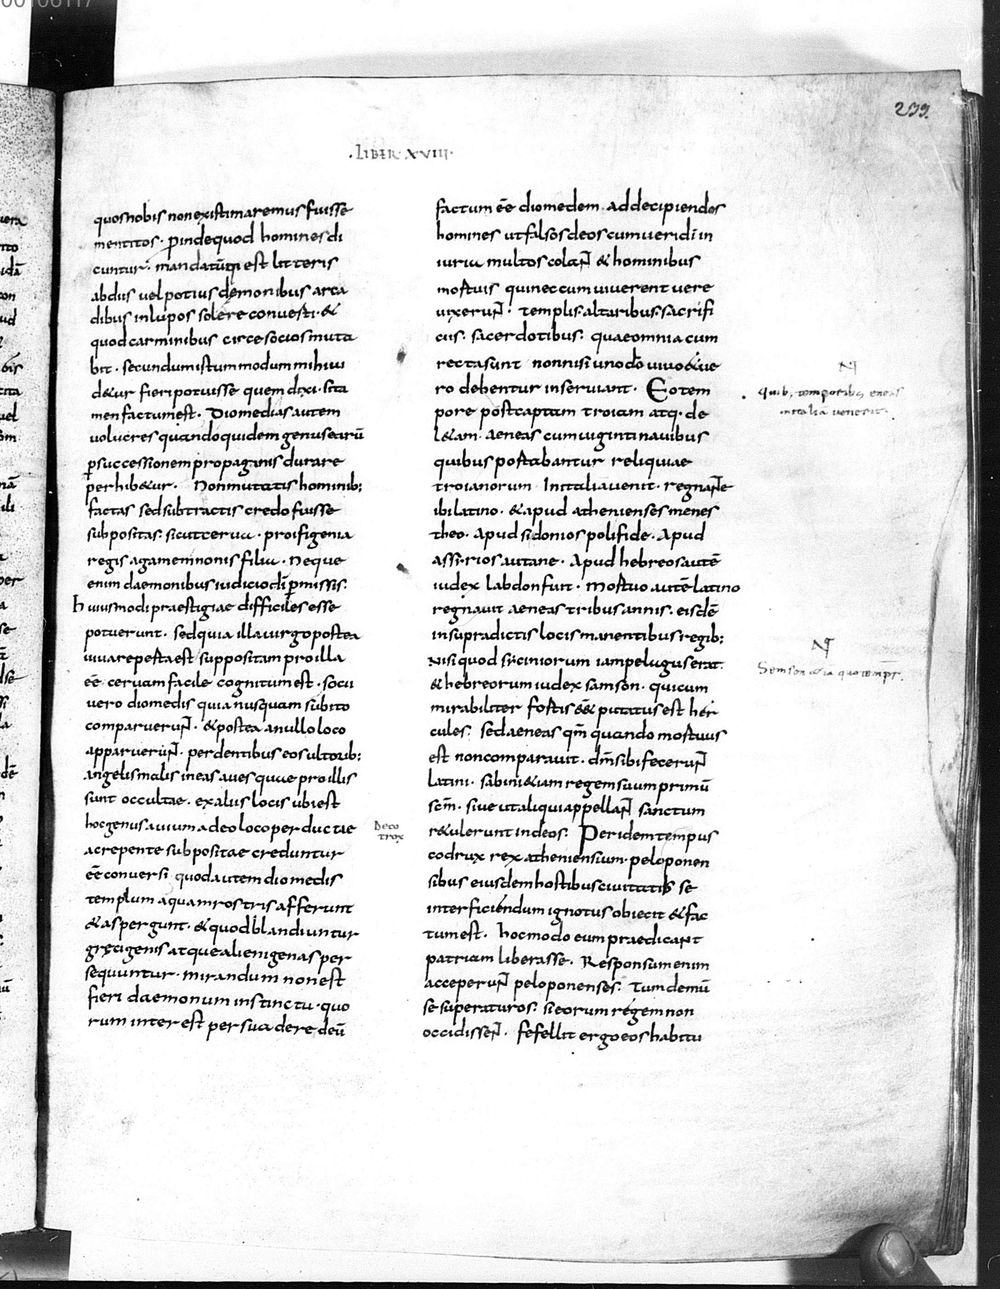 299.
·LIBER·XVIII·
quosnobis nonexistimaremus fuisse
mentitos· pindequod homines di
cuntur· mandatumq; est litteris
abdiis vel potius demonibus arca
dibus inlupos solere conuerti· &
quod carminibus circe socios muta
bit· secundum istum modum mihi ui
d&ur fieri potuisse quem dixi· si ta
men factum est· Diomedias autem
uolucres quando quidem genus earū
p successionem propaginis durare
perhib&ur· Non mutatis hominib;
factas sed subtractis credo fuisse
subpositas· sicut cerua· pro ifigenia
regis agamemnonis filia· Neque
enim daemonibus iudicio di pmissis·
huiusmodi praestigiae difficiles esse
potuerunt· sed quia illa uirgo postea
uiua reperta est suppositam pro illa
eē ceruam facile cognitum est· socii
uero diomedis quia nusquam subito
comparuerunt· & postea a nullo loco
apparuerunt· perdentibus eos ultorib;
angelis malis in eas aues quae pro illis
sunt occultae· ex aliis locis ubi est
hoc genus auium ad eo loco per ductae
ac repente subpositae creduntur
eē conuersi quod autem diomedis
templum aquam rostris afferunt
& aspergunt· & quod blandiuntur
grecigenis atque alienigenas per
sequuntur· mirandum non est
fieri daemonum instinctu· quo
rum interest persuadere deū
factum eē diomedem· ad decipiendos
homines ut falsos deos cum ueri di in
iuria multos colant & hominibus
mortuis qui nec cum uiuerent uere
uixerunt· templis· altaribus· sacrifi
ciis· sacerdotibus· quae omnia cum
recta sunt non nisi uno dō uiuo & ue
ro debentur inseruiant· Eo tem
pore post captam troiam atq· de
l&am· aeneas cum uiginti nauibus
quibus portabantur reliquiae
troianorum In italia uenit· regnante
ibi latino· & apud athenienses menes
theo· Apud sidonios polifide· Apud
assirios autane· Apud hebreos autē
iudex labdon fuit· Mortuo autē latino
regnauit aeneas tribus annis· eisdē
in supradictis locis manentibus regib;
nisi quod siciniorum iam pelagus erat·
& hebreorum iudex samson· qui cum
mirabiliter fortis ēē& putatus est her
cules· sed aeneas qm̄ quando mortuus
est non comparauit· dm̄ sibi fecerunt
latini· sabini &iam regem suum primū
scm̄· siue ut aliqui appellant sanctum
r&ulerunt in deos· Per idem tempus
codrux rex atheniensium· peloponen
sibus eiusdem hostibus ciuitatis se
interficiendum ignotus obiecit & fac
tum est· hoc modo eum praedicant
patriam liberasse· Responsum enim
acceperunt peloponenses· tum demū
se superaturos· si eorum regem non
occidissent· fefellit ergo eos habitu
N̄
Quib; temporibus eneas
in italiā uenerit·
N̄
Semson iudea quo temp̄r·